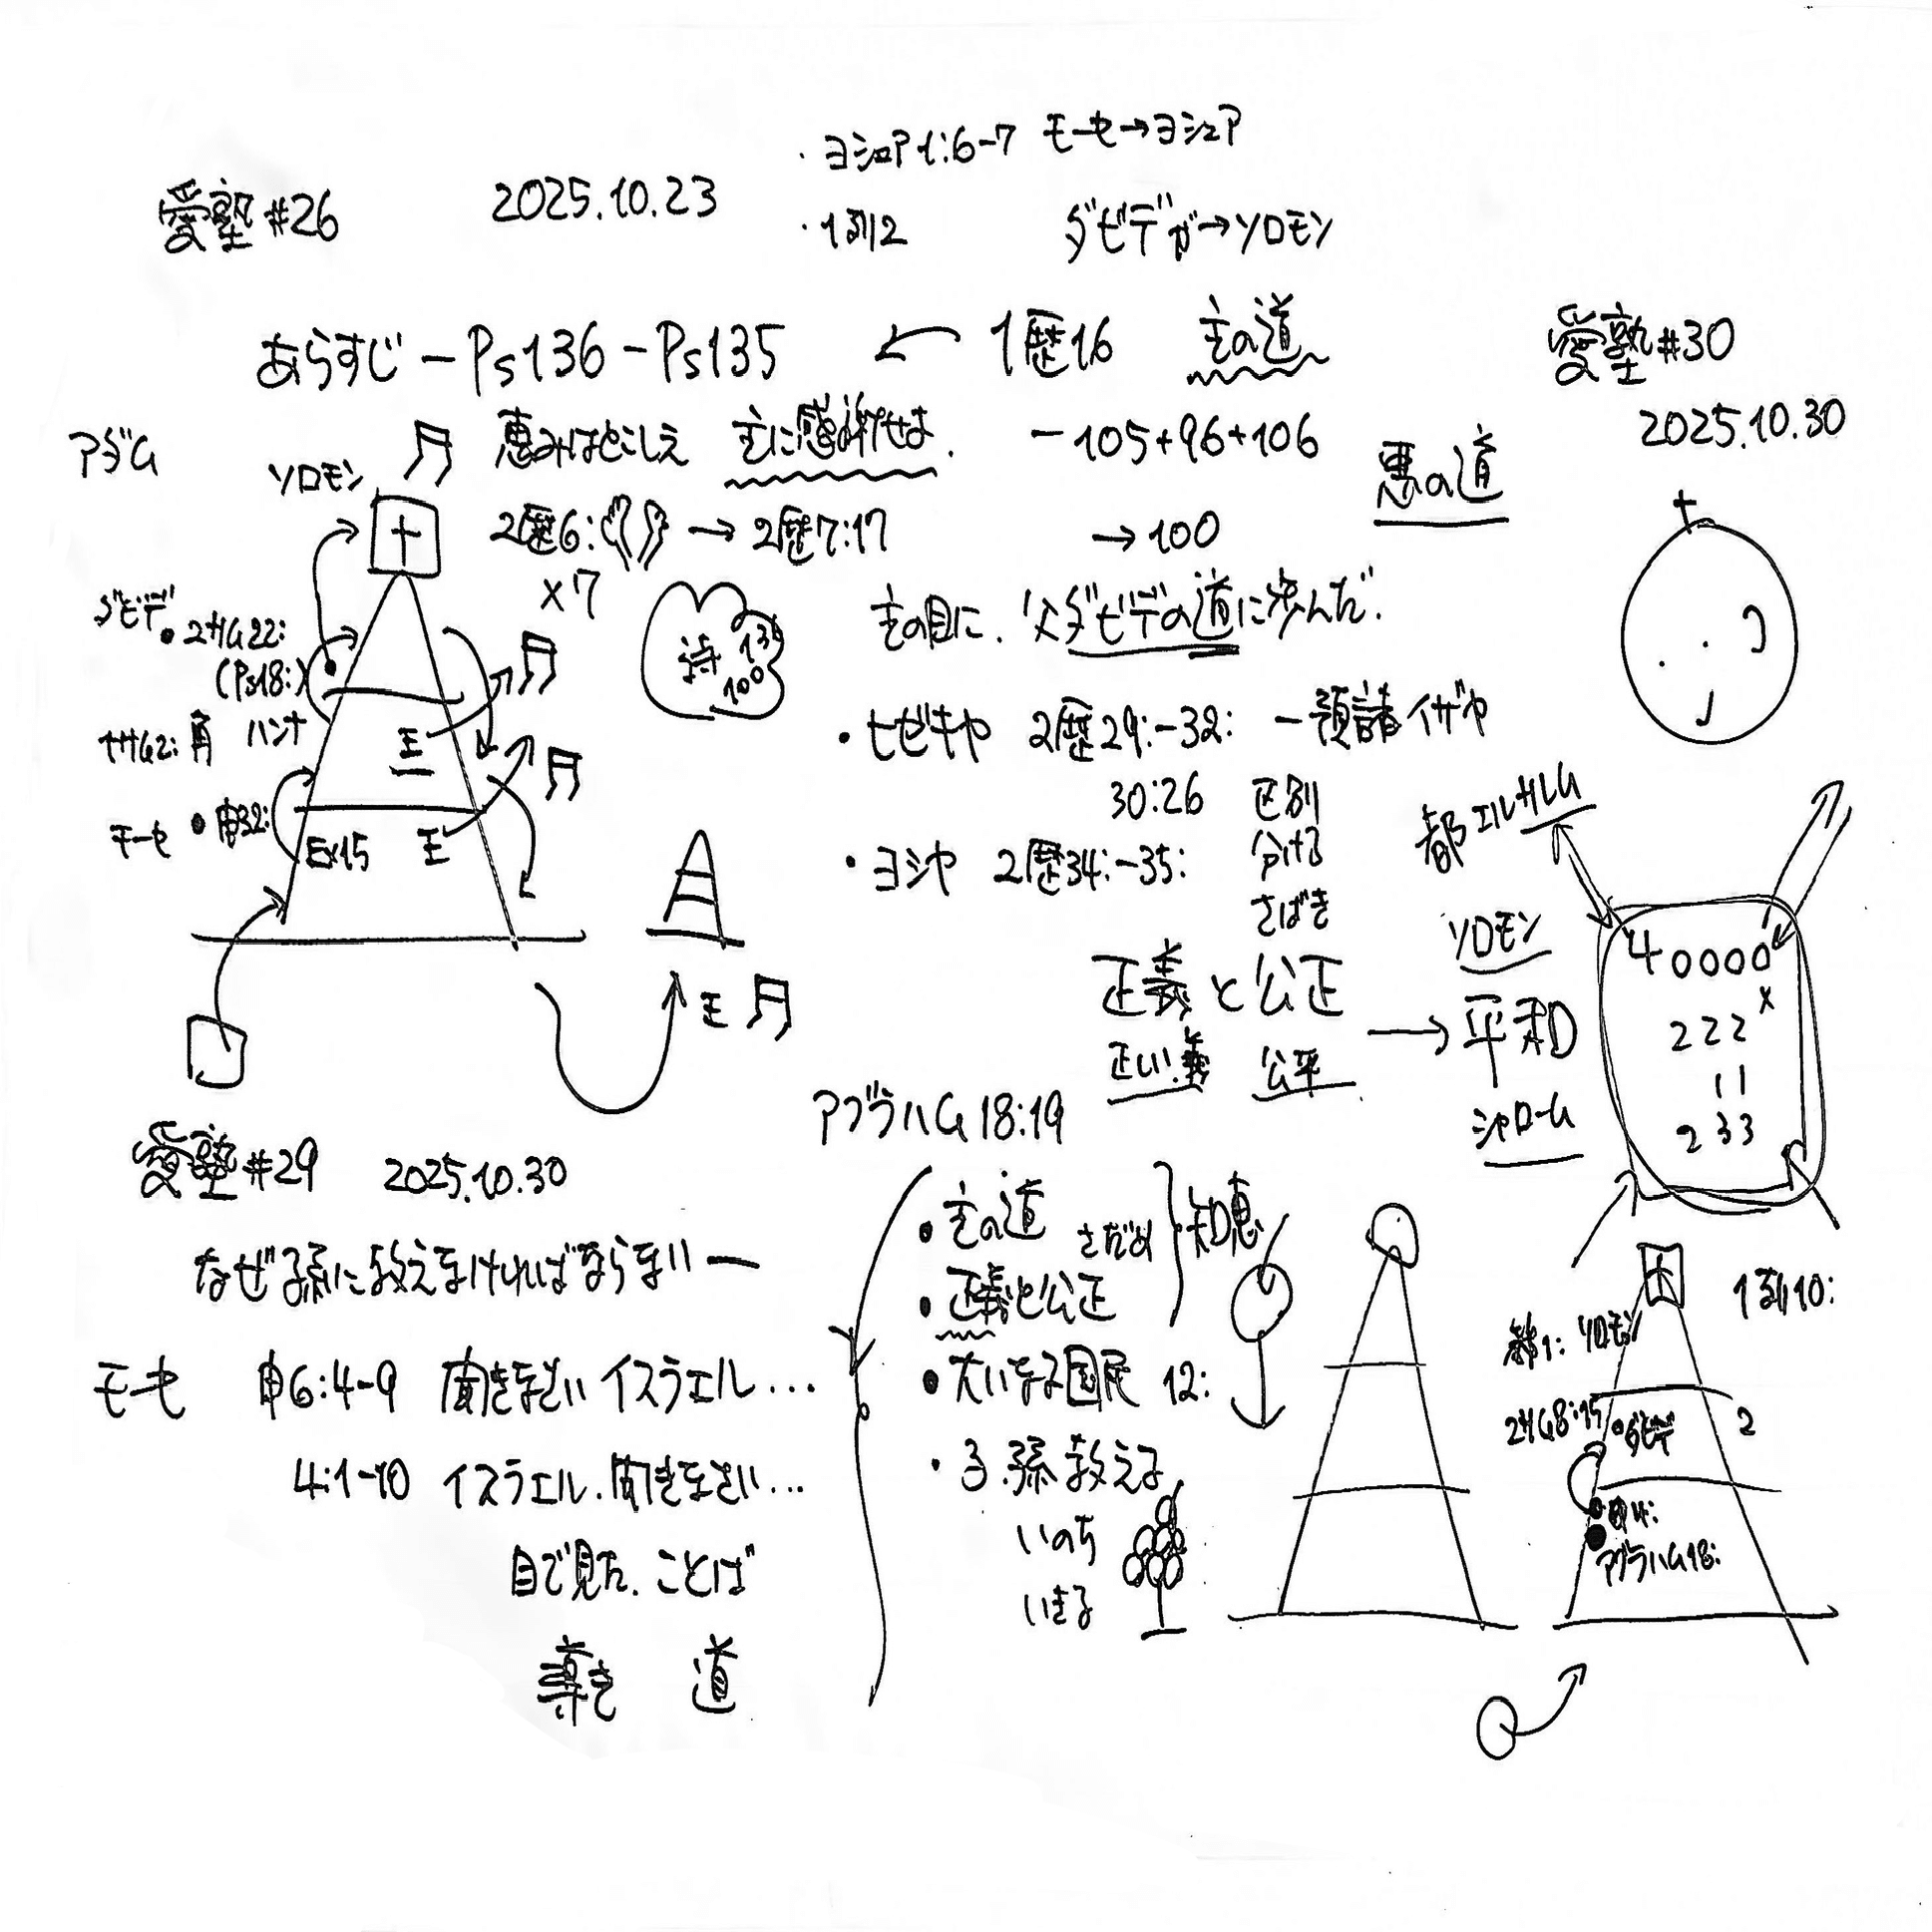 ・ヨシュア1:6-7 モーセ→ヨシュア
愛塾#26 2025.10.23
・1列2 ダビデが→ソロモン
あらすじ－Ps136－Ps135 ← 1歴16 主の道
恵みはとこしえ 主に感謝せよ. －105+96+106
悪の道
ソロモン
2歴6: → 2歴7:17 →100
×7
詩 136 100
主の目に. 父ダビデの道に歩んだ.
ダビデ ・2サム22:
(Ps18:)
ハンナ
王
モーセ ・申32:
Ex15 王
王
・ヒゼキヤ 2歴29:-32: －預言者イザヤ
30:26 区別
分ける
・ヨシヤ 2歴34:-35:
さばき
正義と公正
正しい.義 公平
→平和
ソロモン
シャローム
都エルサレム
愛塾#30
2025.10.30
40000
×
222
11
233
愛塾#29 2025.10.30
なぜ子孫に教えなければならないー
モーセ 申6:4-9 聞きなさいイスラエル…
4:1-10 イスラエル.聞きなさい…
目で見た.ことば
導き 道
アブラハム18:19
・主の道 さだめ
・正義と公正
知恵
・大いなる国民 12:
・子.孫教える
いのち
いきる
1列10:
ソロモン
2サム8:15 ・ダビデ 2
アブラハム18: